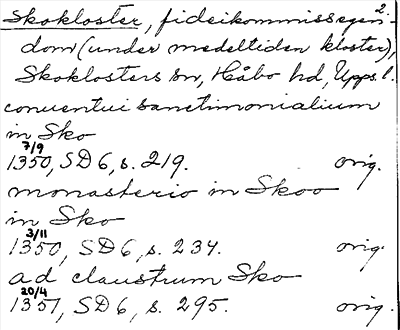 2.
Skokloster, fideikommissegen-
dom (under medeltiden kloster),
Skoklosters sn, Håbo hd, Upps. l.
conuentui sanctimonialium
in Sko
7/9
1350, SD 6, s. 219. orig.
monasterio in Skoo
in Sko
3/11
1350, SD 6, s. 234. orig.
ad claustrum Sko
20/4
1351, SD 6, s. 295. orig.